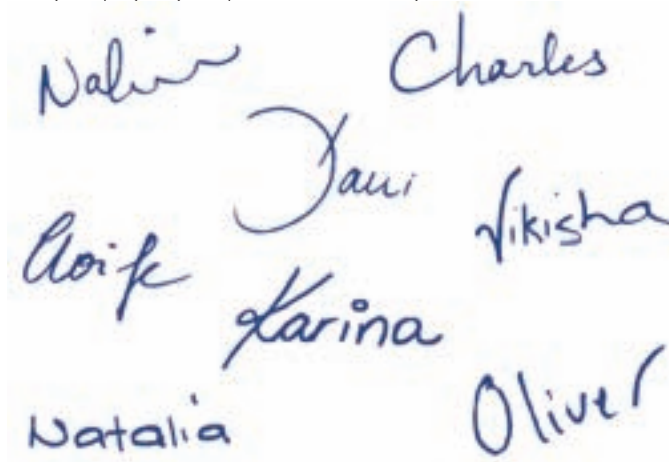 Charles
Vikisha
Aoife
Karina
Natalia
Oliver